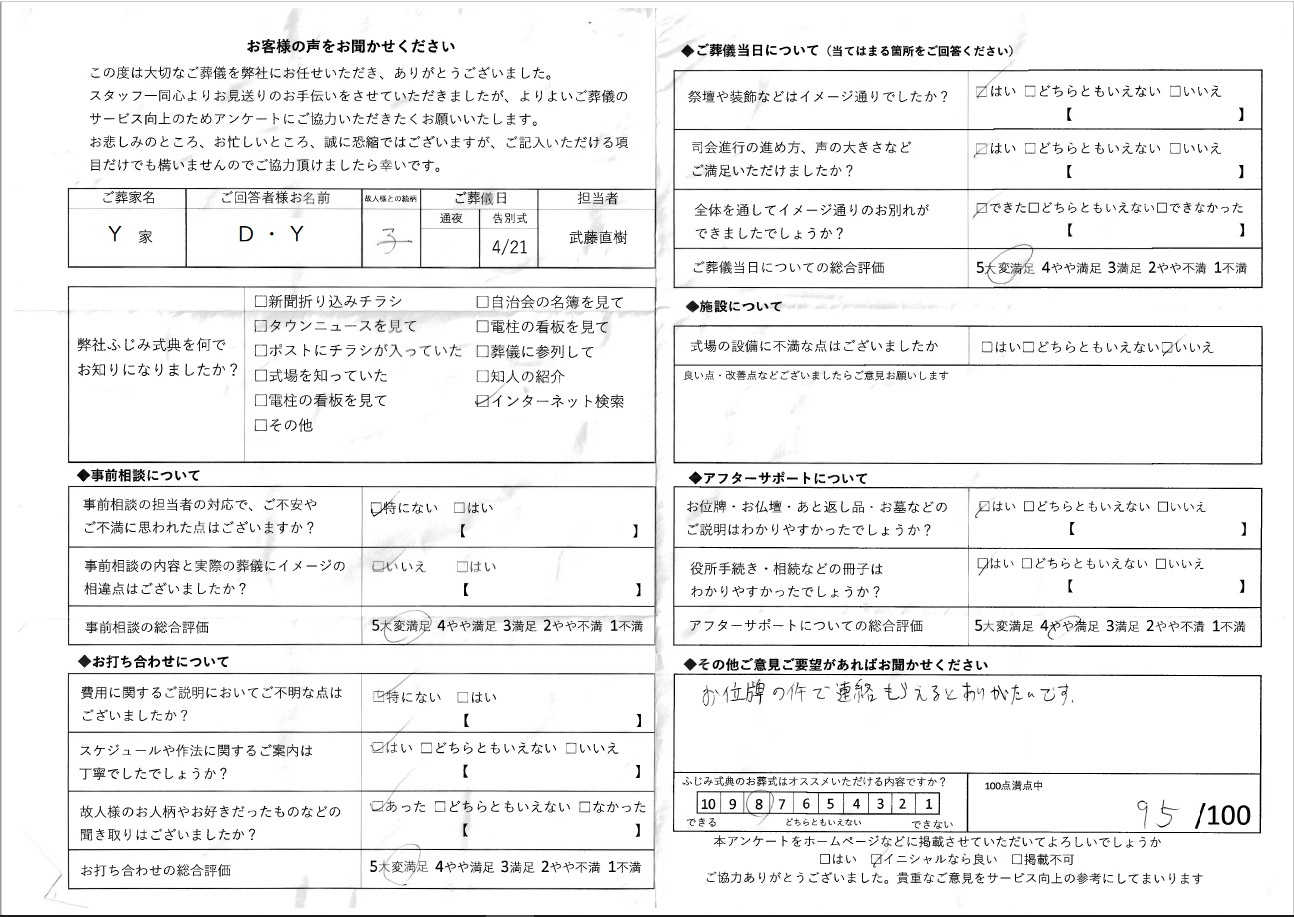 お客様の声をお聞かせください
この度は大切なご葬儀を弊社にお任せいただき、ありがとうございました。
スタッフ一同心よりお見送りのお手伝いをさせていただきましたが、よりよいご葬儀の
サービス向上のためアンケートにご協力いただきたくお願いいたします。
お悲しみのところ、お忙しいところ、誠に恐縮ではございますが、ご記入いただける項
目だけでも構いませんのでご協力頂けましたら幸いです。
ご葬家名 ご回答者様お名前 故人様との続柄 ご葬儀日 担当者
通夜 告別式
Y 家 D・Y 子 4/21 武藤直樹
弊社ふじみ式典を何で
お知りになりましたか？
□新聞折り込みチラシ □自治会の名簿を見て
□タウンニュースを見て □電柱の看板を見て
□ポストにチラシが入っていた □葬儀に参列して
□式場を知っていた □知人の紹介
□電柱の看板を見て ☑インターネット検索
□その他
◆事前相談について
事前相談の担当者の対応で、ご不安や
ご不満に思われた点はございますか？
☑特にない □はい
【 】
事前相談の内容と実際の葬儀にイメージの
相違点はございましたか？
☑いいえ □はい
【 】
事前相談の総合評価 5大変満足 4やや満足 3満足 2やや不満 1不満
◆お打ち合わせについて
費用に関するご説明においてご不明な点は
ございましたか？
☑特にない □はい
【 】
スケジュールや作法に関するご案内は
丁寧でしたでしょうか？
☑はい □どちらともいえない □いいえ
【 】
故人様のお人柄やお好きだったものなどの
聞き取りはございましたか？
☑あった □どちらともいえない □なかった
【 】
お打ち合わせの総合評価 5大変満足 4やや満足 3満足 2やや不満 1不満
◆ご葬儀当日について（当てはまる箇所をご回答ください）
祭壇や装飾などはイメージ通りでしたか？
☑はい □どちらともいえない □いいえ
【 】
司会進行の進め方、声の大きさなど
ご満足いただけましたか？
☑はい □どちらともいえない □いいえ
【 】
全体を通してイメージ通りのお別れが
できましたでしょうか？
☑できた□どちらともいえない□できなかった
【 】
ご葬儀当日についての総合評価 5大変満足 4やや満足 3満足 2やや不満 1不満
◆施設について
式場の設備に不満な点はございましたか □はい□どちらともいえない☑いいえ
良い点・改善点などございましたらご意見お願いします
◆アフターサポートについて
お位牌・お仏壇・あと返し品・お墓などの
ご説明はわかりやすかったでしょうか？
☑はい □どちらともいえない □いいえ
【 】
役所手続き・相続などの冊子は
わかりやすかったでしょうか？
☑はい □どちらともいえない □いいえ
【 】
アフターサポートについての総合評価 5大変満足 4やや満足 3満足 2やや不満 1不満
◆その他ご意見ご要望があればお聞かせください
お位牌の件で連絡もらえるとありがたいです.
ふじみ式典のお葬式はオススメいただける内容ですか？
10 9 8 7 6 5 4 3 2 1
できる どちらともいえない できない
100点満点中
95 /100
本アンケートをホームページなどに掲載させていただいてよろしいでしょうか
□はい ☑イニシャルなら良い □掲載不可
ご協力ありがとうございました。貴重なご意見をサービス向上の参考にしてまいります